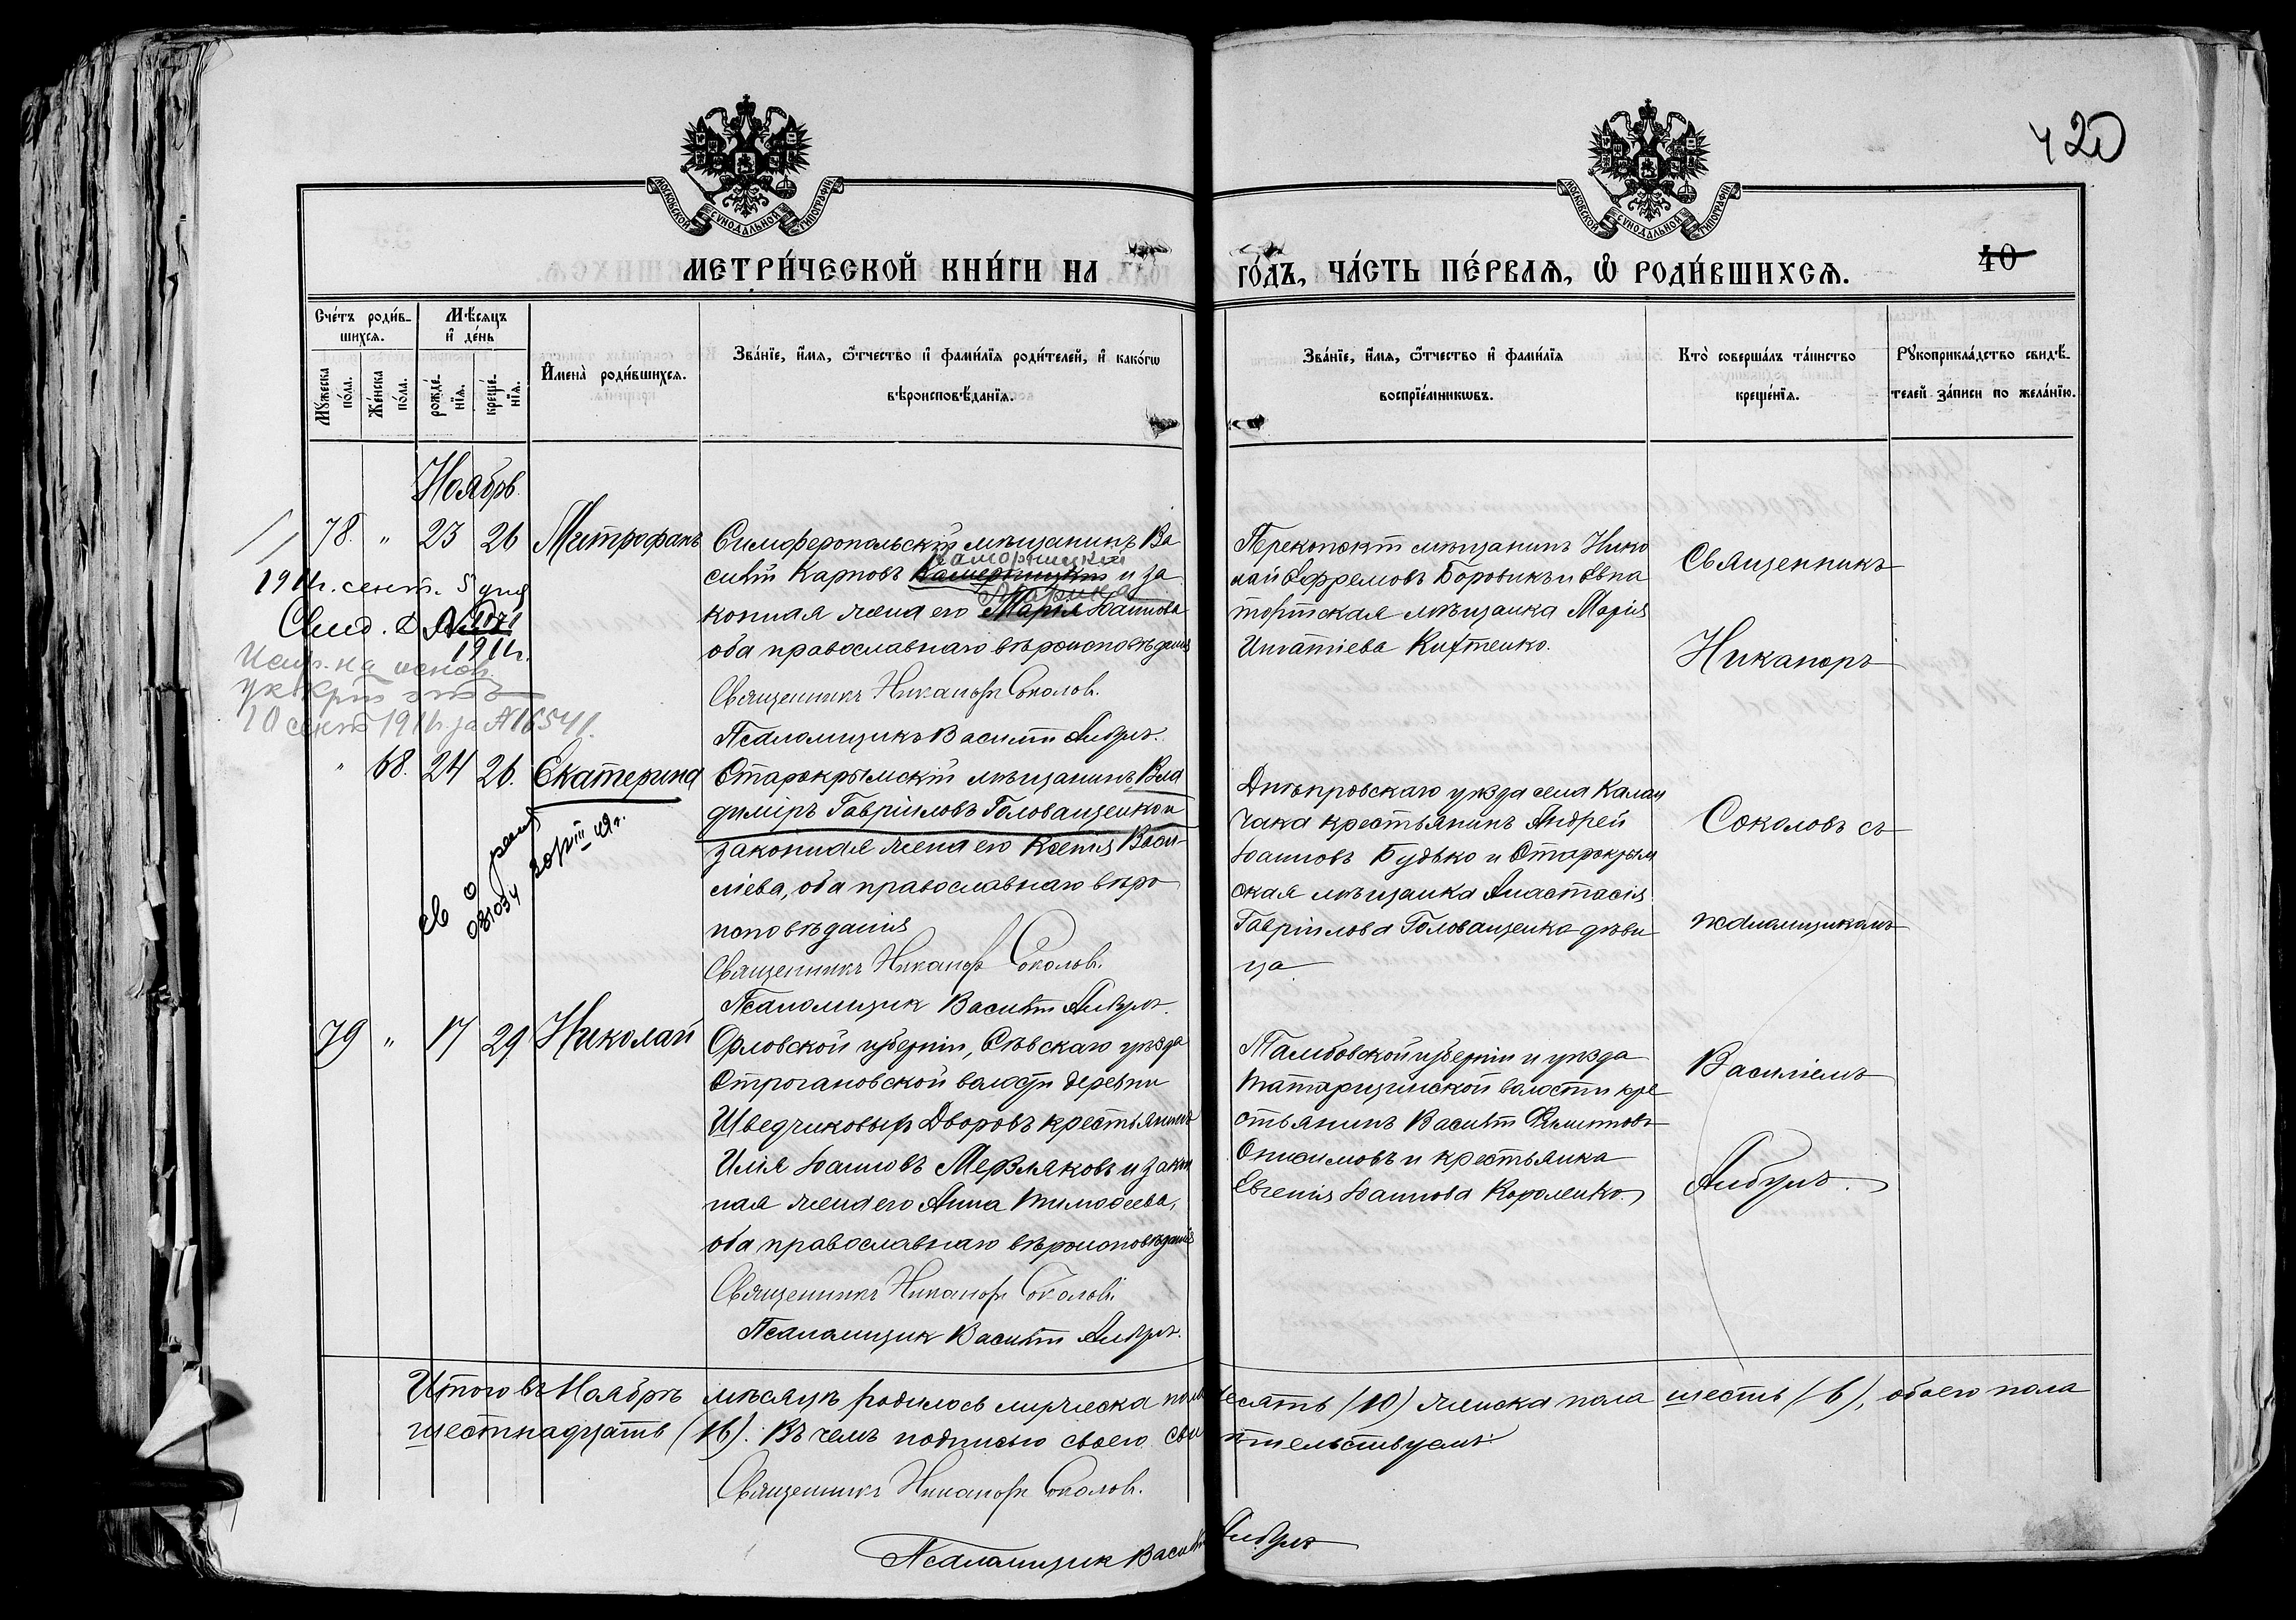 420
МОСКОВСКОЙ СУНОДАЛЬНОЙ ТИПОГРАФІИ
МОСКОВСКОЙ СУНОДАЛЬНОЙ ТИПОГРАФІИ
МЕТРИ́ЧЕСКОЙ КНИ́ГИ НА
ГО́ДЪ, ЧА́СТЬ ПЕ́РВАѦ, Ѡ РОДИ́ВШИХСѦ.
40
Сче́тъ роди́в-
шихсѧ.
Мꙋжеска по́ла.
Же́нска по́ла.
Мѣ́сѧцъ
и҆ де́нь
рожде́-
нїѧ.
креще́-
нїѧ.
И҆мена̀ роди́вшихсѧ.
Зва́нїе, и҆́мѧ, ѻ҆́тчество и҆ фами́лїѧ роди́телей, и҆ како́гѡ
вѣроисповѣ́данїѧ.
Зва́нїе, и҆́мѧ, ѻ҆́тчество и҆ фами́лїѧ
воспрїе́мникѡвъ.
Кто̀ соверша́лъ та́инство
креще́нїѧ.
Рꙋкоприкла́дство свидѣ́-
телей за́писи по жела́нїю.
Ноябрь.
78. " 23 26 Митрофанъ
Симферопольскій мѣщанинъ Ва
силій Карповъ и за
конная жена его Марія Іоаннова
оба православнаго вѣроисповѣданія
Священникъ Никаноръ Соколовъ.
Псаломщикъ Василій Анбулъ.
Перекопскій мѣщанинъ Нико
лай Ефремовъ Боровикъ и Евпа
торійская мѣщанка Марія
Игнатіева
Священникъ
Никаноръ
1911г. сент. 5 дня
Свид. №
1911г.
Испр. на основ.
20 сент 1911г за № 16541.
" 68. 24 26. Екатерина
Старокрымскій мѣщанинъ Вла
диміръ Гавріиловъ Голованценко и
законная жена его Ксенія Васи-
ліева, оба православнаго вѣро
исповѣданія
Священникъ Никаноръ Соколовъ.
Псаломщикъ Василій Анбулъ.
Днѣпровскаго уѣзда села Калан
чака крестьянинъ Андрей
Іоанновъ Будько и Старокрым
ская мѣщанка Анастасія
Гавріилова Голованценко дѣви
ца
Соколовъ съ
псаломщикомъ
79 " 17 29 Николай
Орловской губерніи, Сѣвскаго уѣзда
Строгановской волости деревни
Шведчиковыхъ Дворовъ крестьянинъ
Илія Іоанновъ Мерзляковъ и закон
ная жена его Анна Тимоѳеева,
оба православнаго вѣроисповѣданія
Священникъ Никаноръ Соколовъ.
Псаломщикъ Василій Анбулъ.
Тамбовской губерніи и уѣзда
Татарщинской волости кре
стьянинъ Василій Филипповъ
Онисимовъ и крестьянка
Евгенія Іоаннова Короленко.
Василіемъ
Анбулъ.
Итого въ Ноябрѣ мѣсяцѣ родилось мужеска пола десять (10) женска пола шесть (6), обоего пола
шестнадцать (16). Въ чемъ подписью своею свидѣтельствуемъ:
Священникъ Никаноръ Соколовъ.
Псаломщикъ Василій Анбулъ